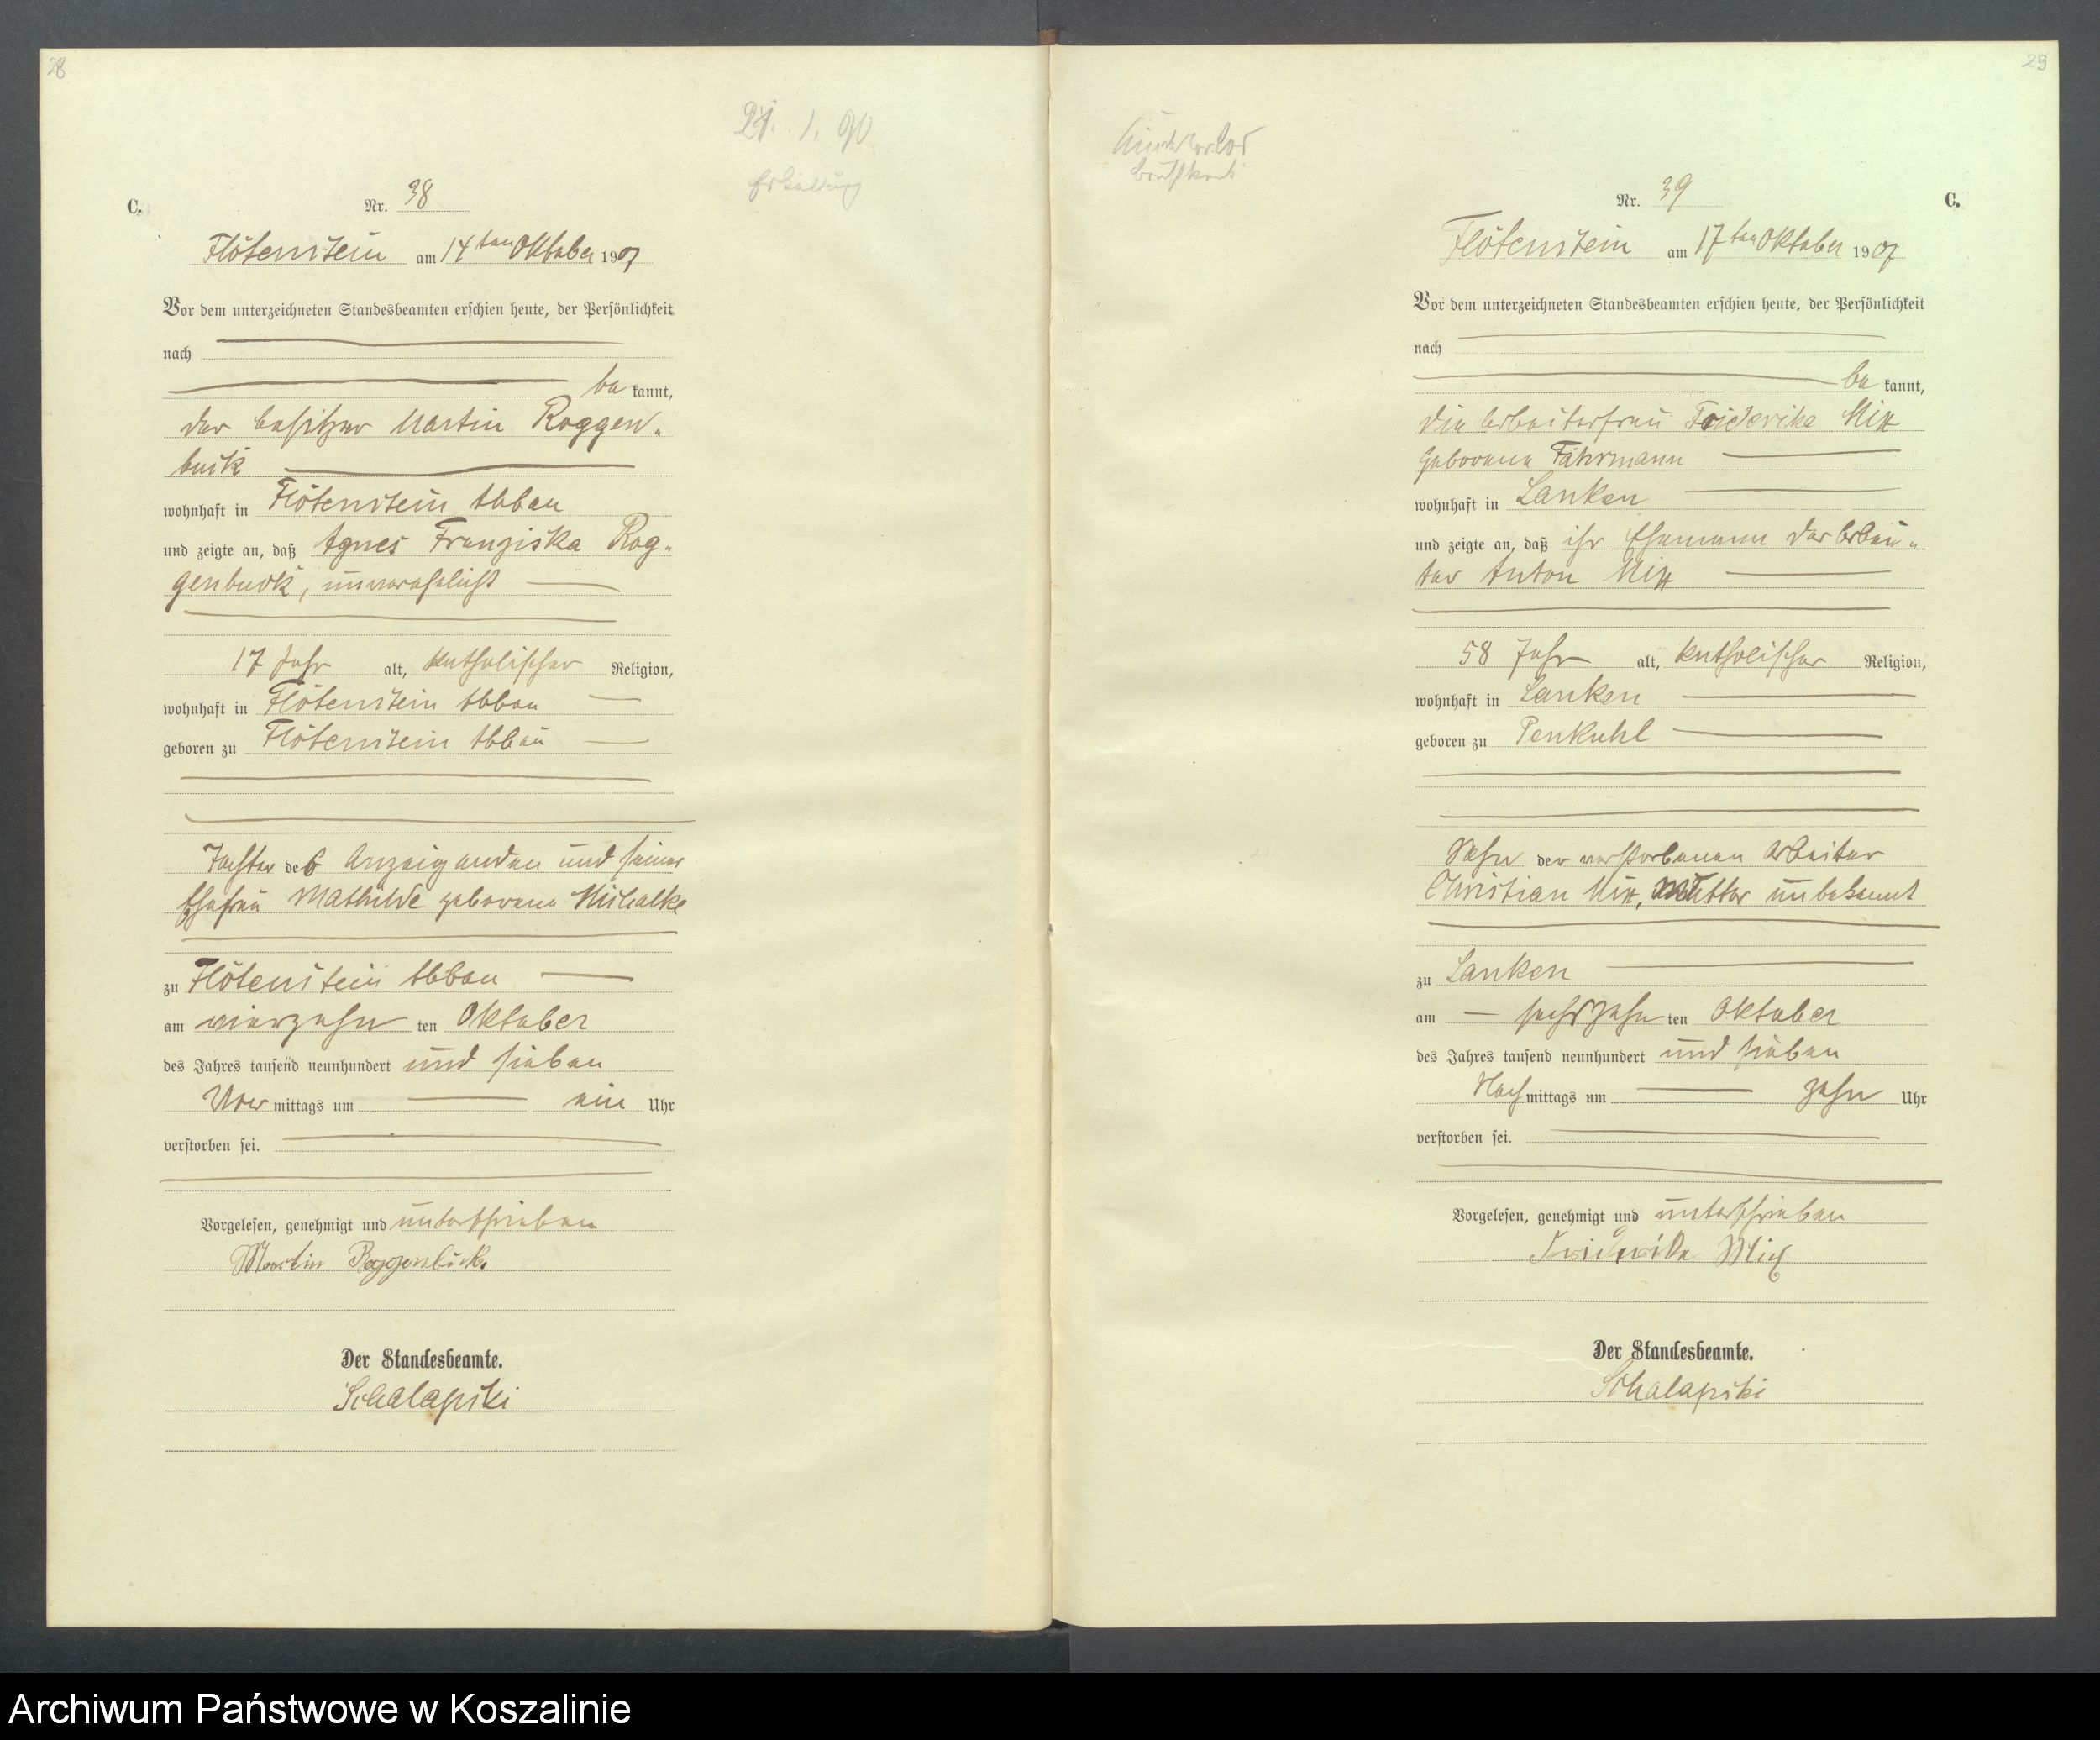 28
21. 1. 90
Erkältung
C.
Nr. 38
Flötenstein am 14ten Oktober 1907
Vor dem unterzeichneten Standesbeamten erschien heute, der Persönlichkeit
nach
be kannt,
der Besitzer Martin Roggen-
buck
wohnhaft in Flötenstein Abbau
und zeigte an, daß Agnes Franziska Rog-
genbuck, unverehelicht
17 Jahr alt, katholischer Religion,
wohnhaft in Flötenstein Abbau
geboren zu Flötenstein Abbau
Tochter des Anzeigenden und seiner
Ehefrau Mathilde geborene Mischalke
zu Flötenstein Abbau
am vierzehn ten Oktober
des Jahres tausend neunhundert und sieben
Vor mittags um ein Uhr
verstorben sei.
Vorgelesen, genehmigt und unterschrieben
Martin Roggenbuck.
Der Standesbeamte.
Schalapski
29
C.
Nr. 39
Flötenstein am 17ten Oktober 1907
Vor dem unterzeichneten Standesbeamten erschien heute, der Persönlichkeit
nach
be kannt,
die Arbeiterfrau Friederike Mix
geborene Fährmann
wohnhaft in Lanken
und zeigte an, daß ihr Ehemann der Arbei-
ter Anton Mix
58 Jahr alt, katholischer Religion,
wohnhaft in Lanken
geboren zu Penkuhl
Sohn der verstorbenen Arbeiter
Christian Mix, Mutter unbekannt
zu Lanken
am sechszehn ten Oktober
des Jahres tausend neunhundert und sieben
Nach mittags um zehn Uhr
verstorben sei.
Vorgelesen, genehmigt und unterschrieben
Friederike Mix
Der Standesbeamte.
Schalapski
Archiwum Państwowe w Koszalinie